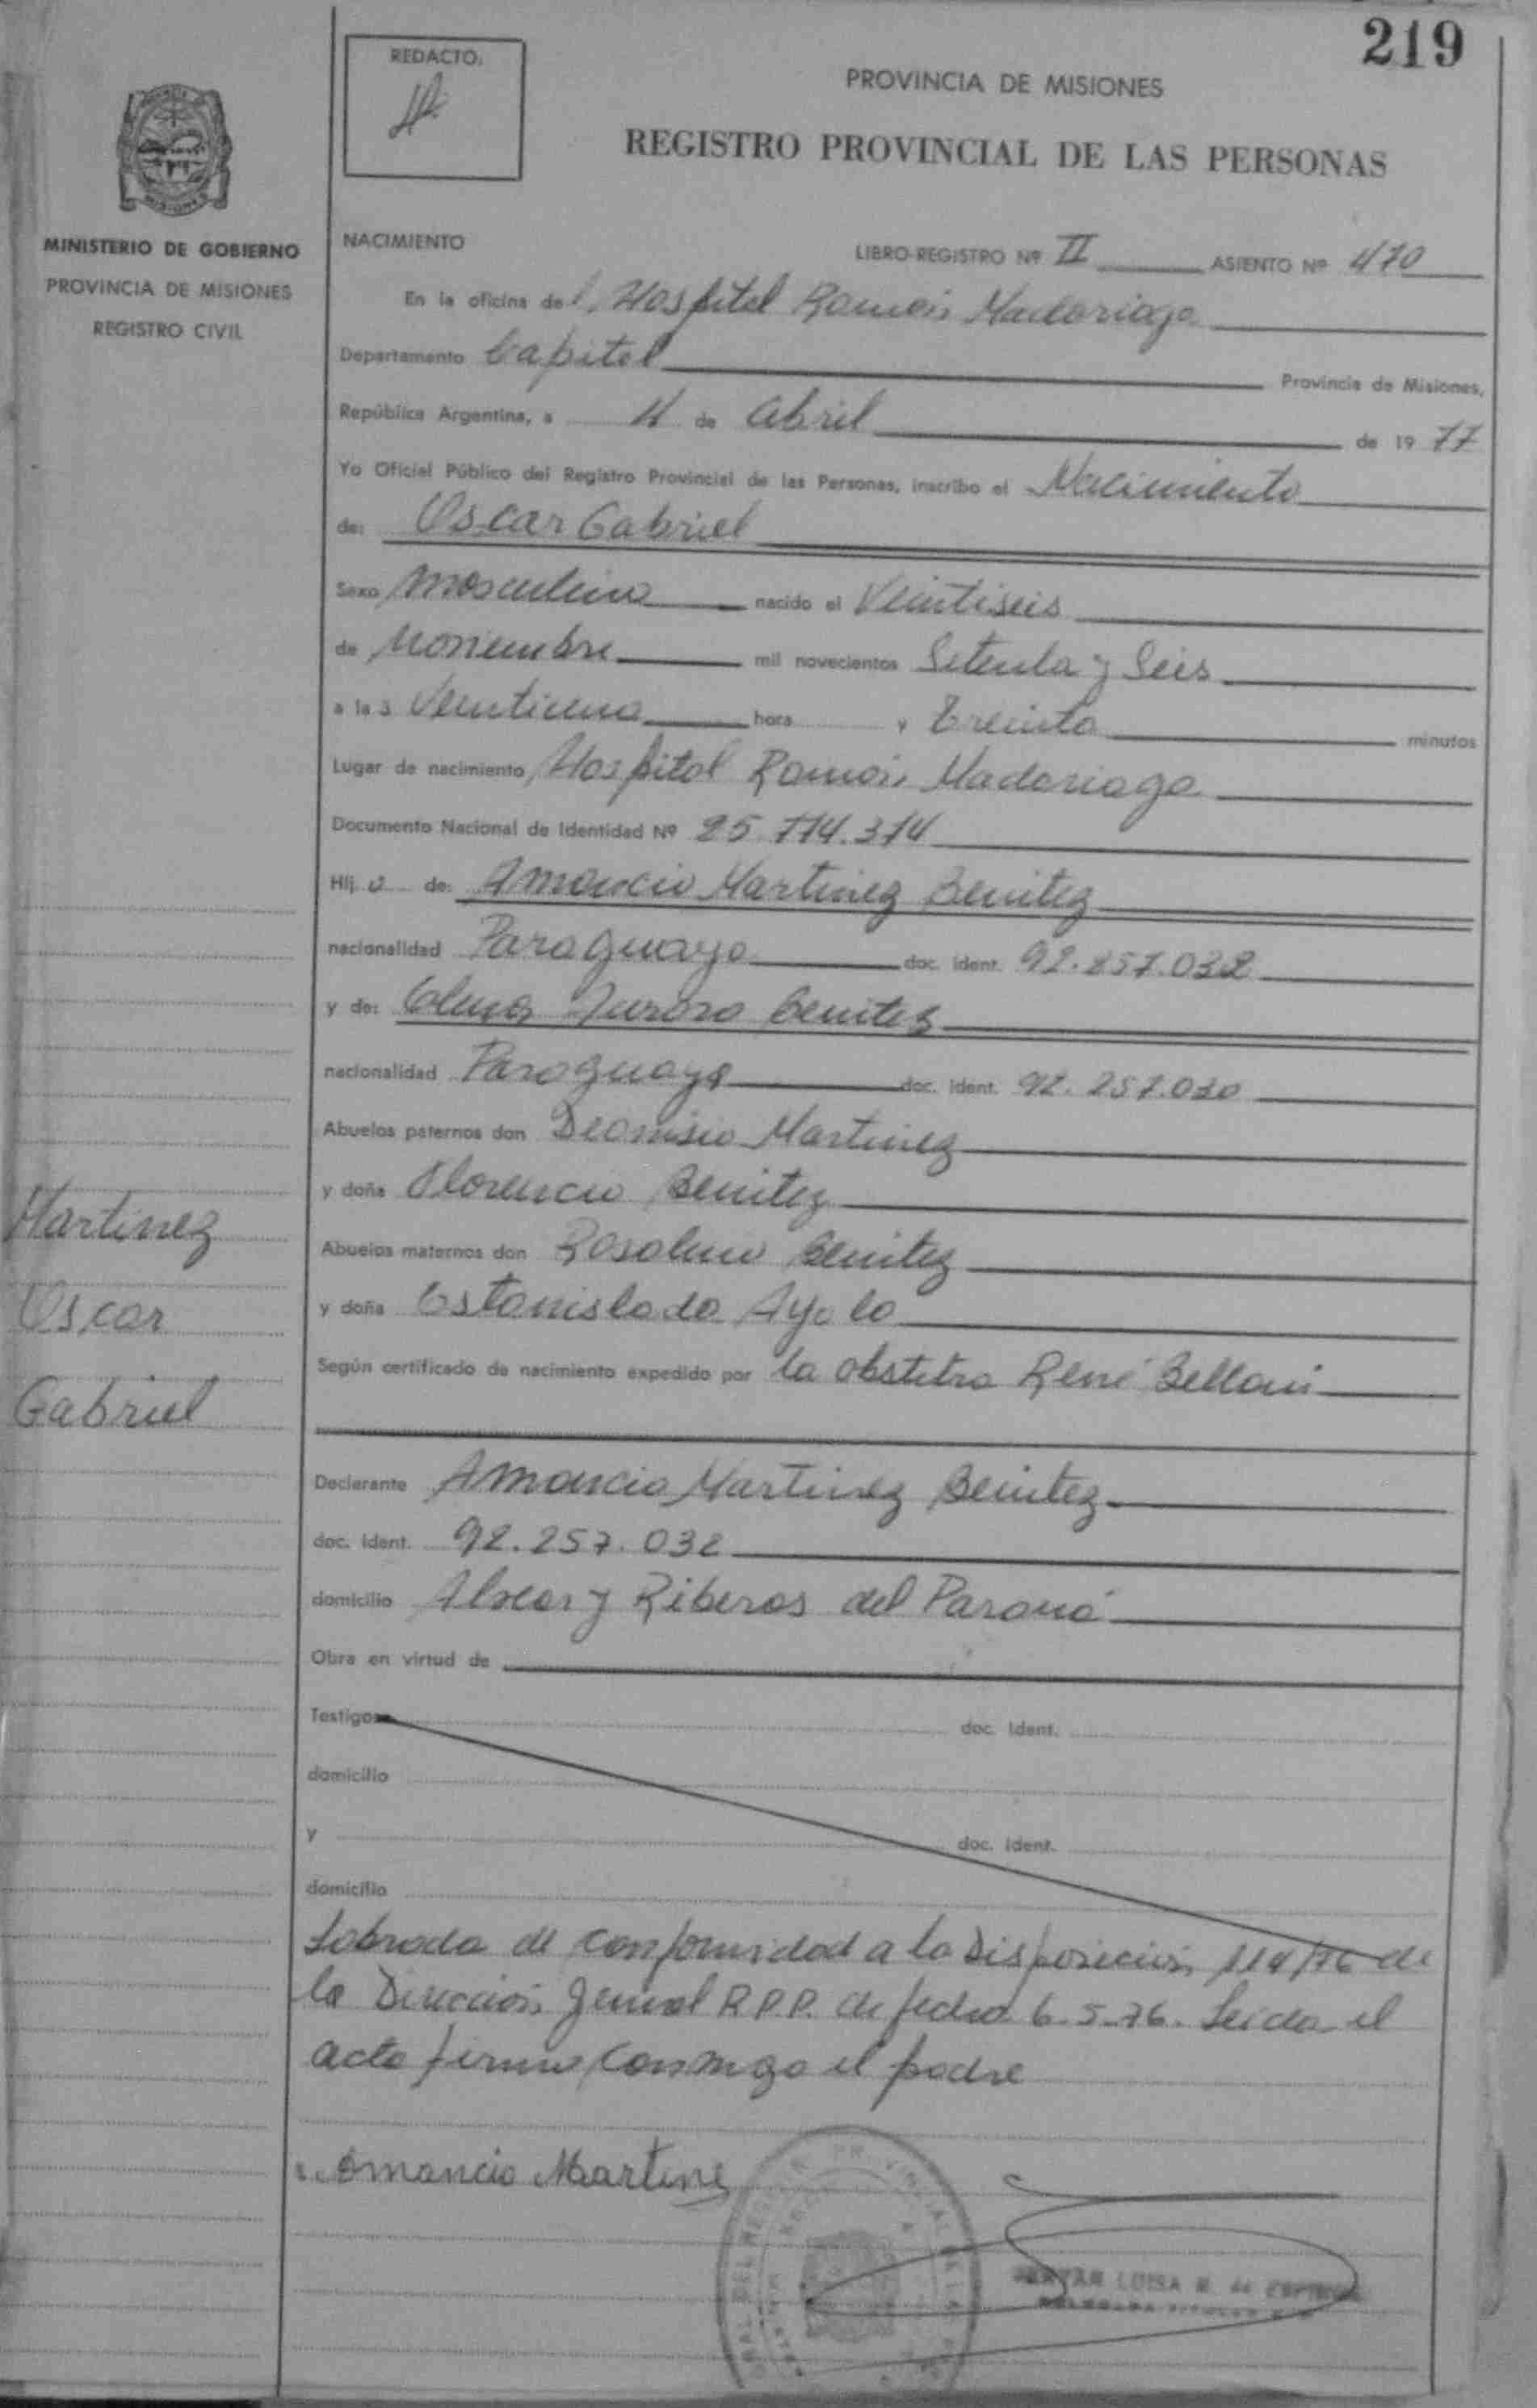 219
REDACTO:
PROVINCIA DE MISIONES
REGISTRO PROVINCIAL DE LAS PERSONAS
MINISTERIO DE GOBIERNO
PROVINCIA DE MISIONES
REGISTRO CIVIL
NACIMIENTO LIBRO-REGISTRO Nº II ASIENTO Nº 470
En la oficina del Hospital Ramón Madariaga
Departamento Capital Provincia de Misiones,
República Argentina, a 4 de Abril de 1977
Yo Oficial Público del Registro Provincial de las Personas, inscribo el Nacimiento
de: Oscar Gabriel
Sexo Masculino nacido el Veintiseis
de Noviembre mil novecientos Setenta y Seis
a las Veintiuna hora y Treinta minutos
Lugar de nacimiento Hospital Ramón Madariaga
Documento Nacional de Identidad Nº 25.714.314
Hijo de: Amancio Martinez Benitez
nacionalidad Paraguaya doc. ident. 92.257.032
y de: Aurora Benitez
nacionalidad Paraguaya doc. ident. 92.257.030
Abuelos paternos don Dionisio Martinez
y doña Florencia Benitez
Abuelos maternos don Rosalino Benitez
y doña Estanislada Ayala
Martinez
Oscar
Gabriel
Según certificado de nacimiento expedido por la obstetra René Belloni
Declarante Amancio Martinez Benitez
doc. ident. 92.257.032
domicilio Alvear y Riberas del Paraná
Obra en virtud de
Testigos doc. ident.
domicilio
y doc. ident.
domicilio
Labrada de conformidad a la Disposición 114/76 de
la Dirección General R.P.P. de fecha 6-5-76. Leida el
acta firma conmigo el padre
Amancio Martinez
LUISA